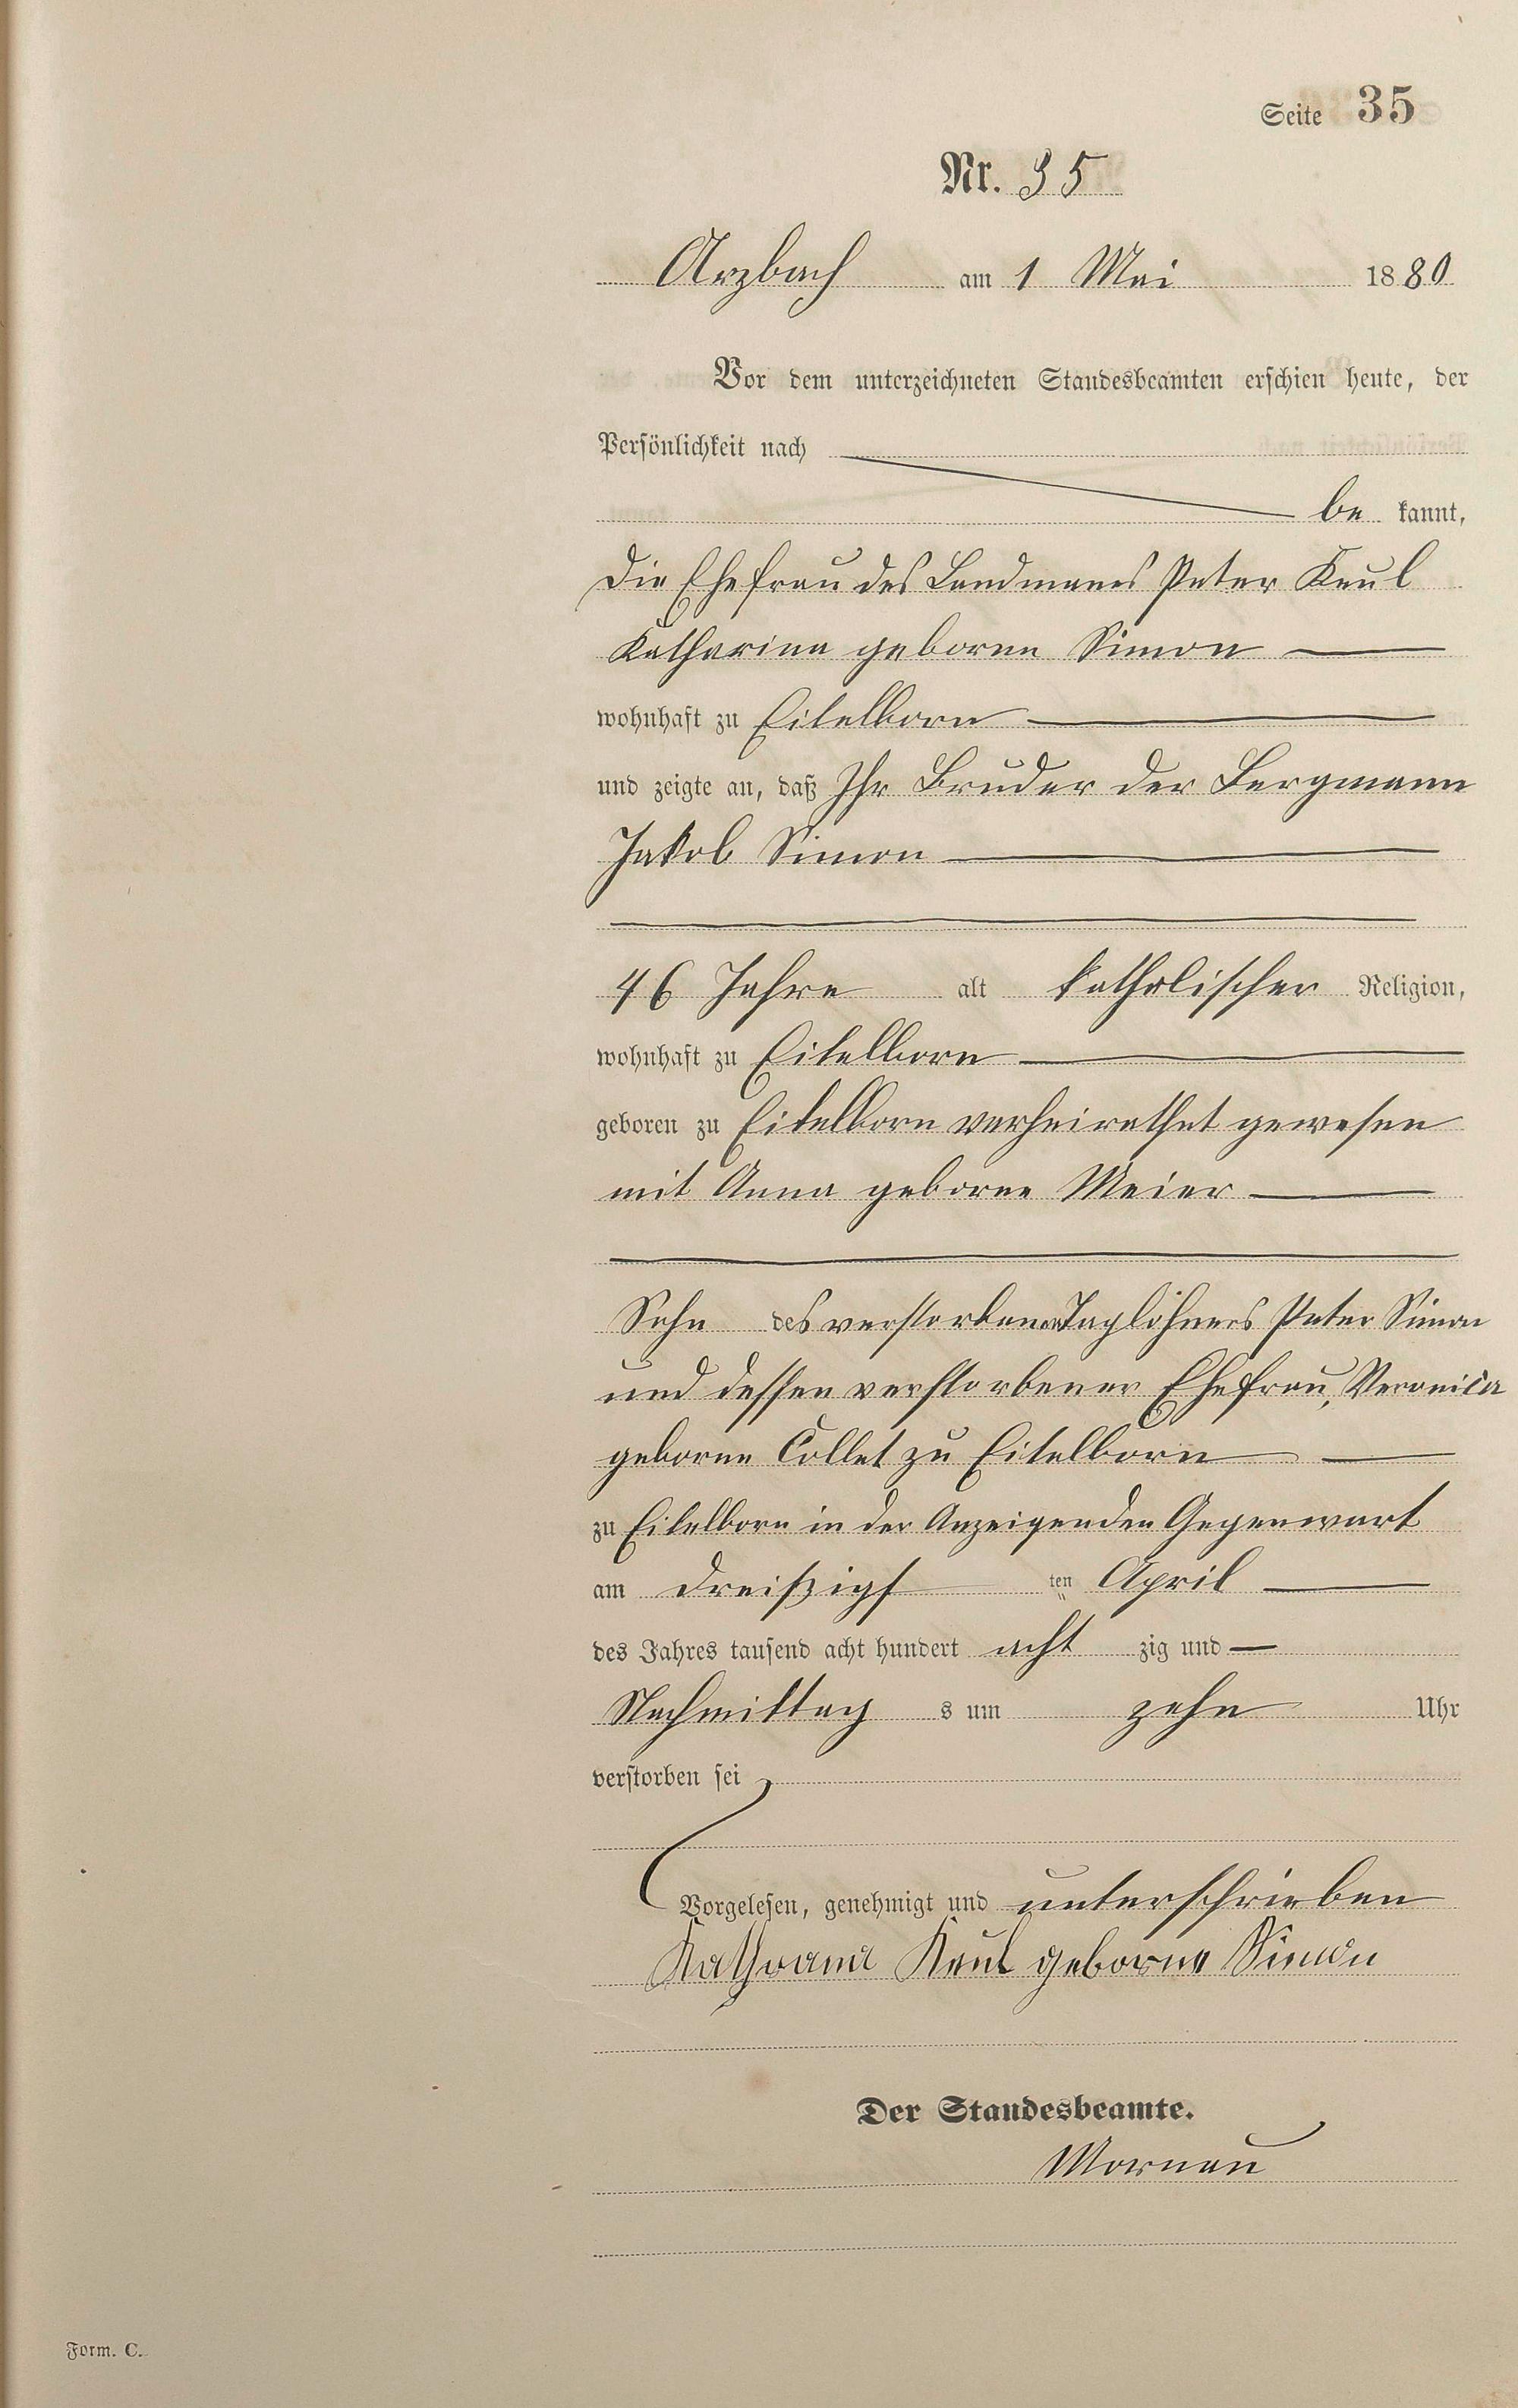 Seite 35
Nr. 35
Arzbach am 1 Mai 1880
Vor dem unterzeichneten Standesbeamten erschien heute, der
Persönlichkeit nach
be kannt,
die Ehefrau des Landmanns Peter Keul
Katharina geborne Simon
wohnhaft zu Eitelborn
und zeigte an, daß Ihr Bruder der Bergmann
Jakob Simon
46 Jahre alt katholischer Religion,
wohnhaft zu Eitelborn
geboren zu Eitelborn verheirathet gewesen
mit Anna geborne Meier
Sohn des verstorbenen Taglöhners Peter Simon
und dessen verstorbener Ehefrau, Veronica
geborne Collet zu Eitelborn
zu Eitelborn in der Anzeigenden Gegenwart
am dreißigs ten April
des Jahres tausend acht hundert acht zig und
Nachmittag s um zehn Uhr
verstorben sei
Vorgelesen, genehmigt und unterschrieben
Kathrana Keul geborne Simon
Der Standesbeamte.
Mornau
Form. C.